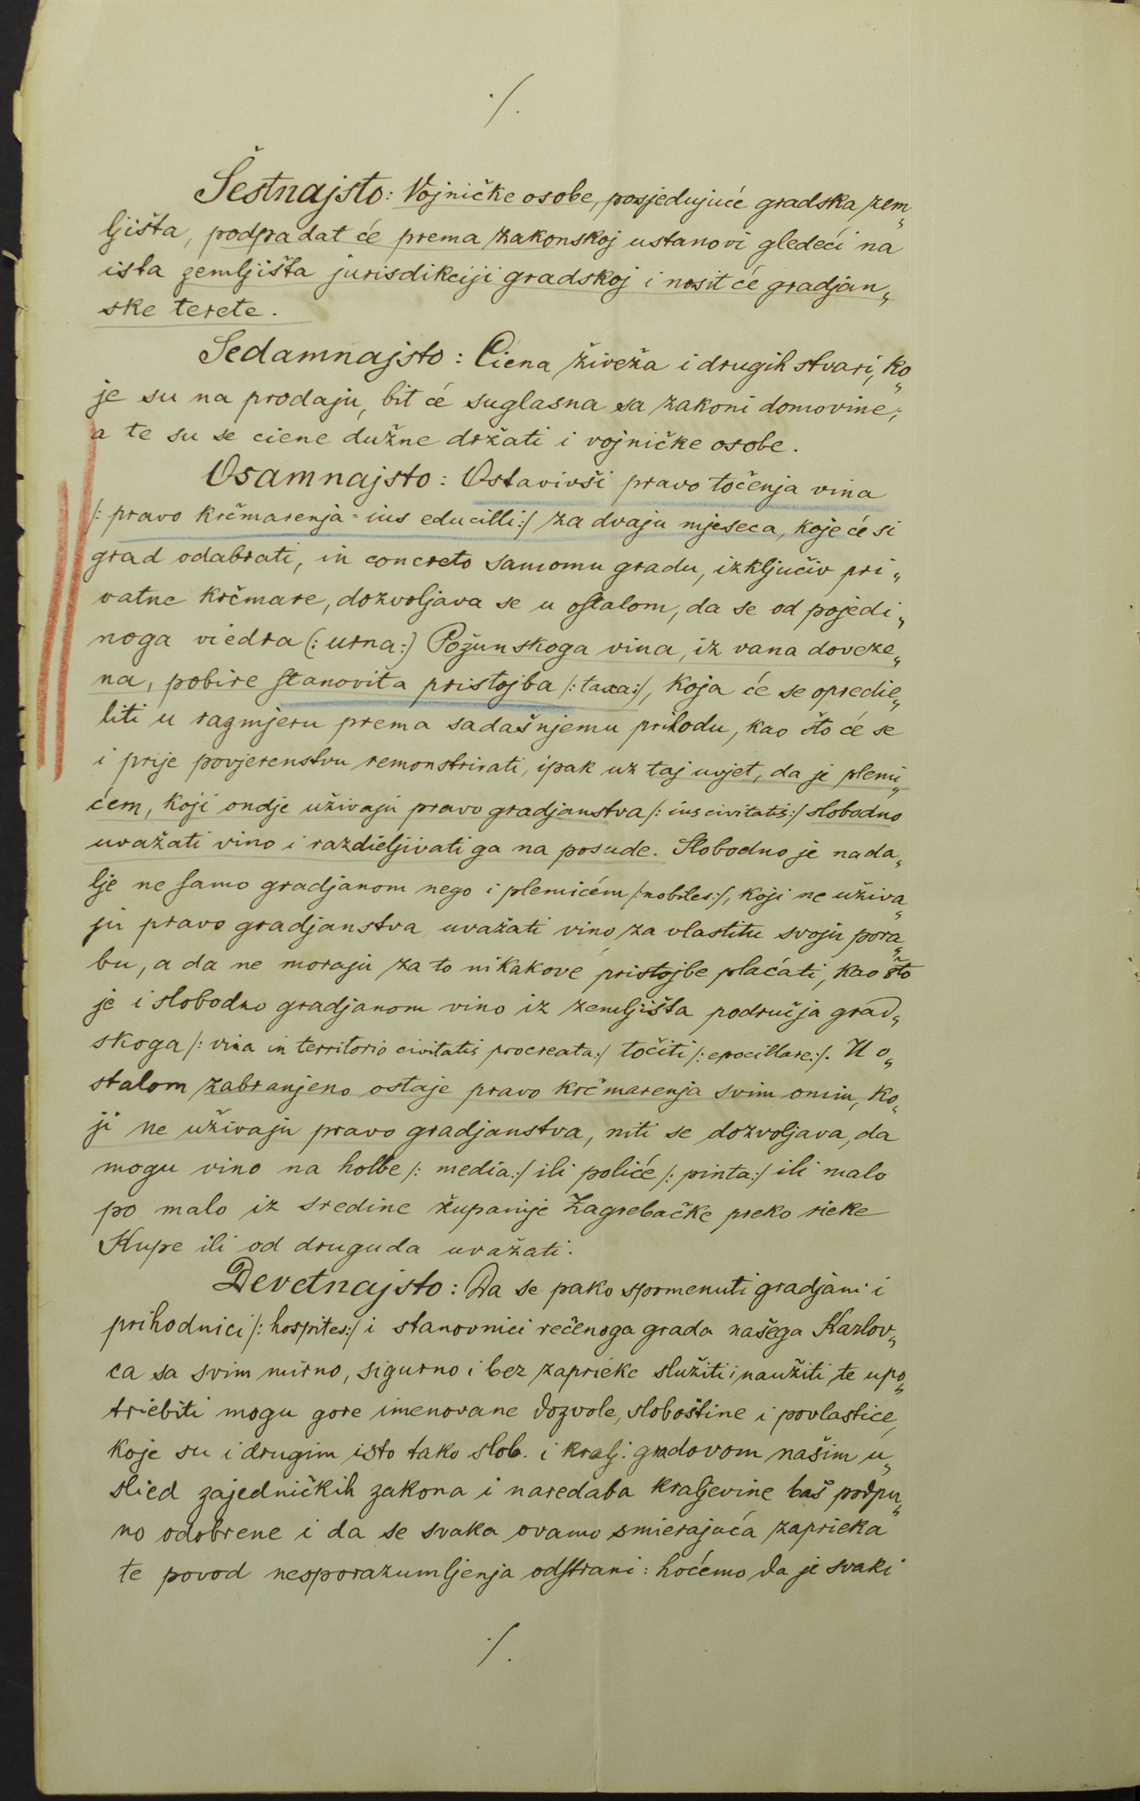 ·/.
Šestnajsto: Vojničke osobe, posjedujuće gradska zem„
ljišta, podpadat će prema zakonskoj ustanovi gledeći na
ista zemljišta jurisdikciji gradskoj i nosit će gradjan„
ske terete.
Sedamnajsto: Ciena živeža i drugih stvari, ko„
je su na prodaju, bit će suglasna sa zakoni domovine;
a te su se ciene dužne držati i vojničke osobe.
Osamnajsto: Ostavivši pravo točenja vina
/: pravo krčmarenja - ius educilli:/ za dvaju mjeseca, koje će si
grad odabrati, in concreto samomu gradu, izključiv pri„
vatne krčmare, dozvoljava se u ostalom, da se od pojedi„
noga viedra (: urna:) Požunskoga vina, iz vana doveže„
na, pobire stanovita pristojba /: taxa:/, koja će se opredie„
liti u razmjeru prema sadašnjemu prihodu, kao što će se
i prije povjerenstvu remonstrirati, ipak uz taj uvjet, da je plemi„
ćem, koji ondje uživaju pravo gradjanstva /: ius civitatis:/ slobodno
uvažati vino i razdieljivati ga na posude. Slobodno je nada„
lje ne samo gradjanom nego i plemićem /:nobiles:/, koji ne uživa„
ju pravo gradjanstva uvažati vino za vlastitu svoju pora„
bu, a da ne moraju za to nikakove pristojbe plaćati, kao što
je i slobodno gradjanom vino iz zemljišta područja grad„
skoga /: vina in territorio civitatis procreata:/ točiti /: epocillare:/. U o„
stalom zabranjeno ostaje pravo krčmarenja svim onim, ko„
ji ne uživaju pravo gradjanstva, niti se dozvoljava, da
mogu vino na holbe /: media:/ ili poliće /: pinta:/ ili malo
po malo iz sredine županije Zagrebačke preko rieke
Kupe ili od druguda uvažati.
Devetnajsto: Da se pako spomenuti gradjani i
prihodnici /: hospites:/ i stanovnici rečenoga grada našega Karlov„
ca sa svim mirno, sigurno i bez zaprieke služiti i naužiti te upo„
triebiti mogu gore imenovane dozvole, sloboštine i povlastice,
koje su i drugim isto tako slob. i kralj. gradovom našim u„
slied zajedničkih zakona i naredaba kraljevine baš podpu„
no odobrene i da se svaka ovamo smierajuća zaprieka
te povod nesporazumljenja odstrani: hoćemo da je svaki
·/.